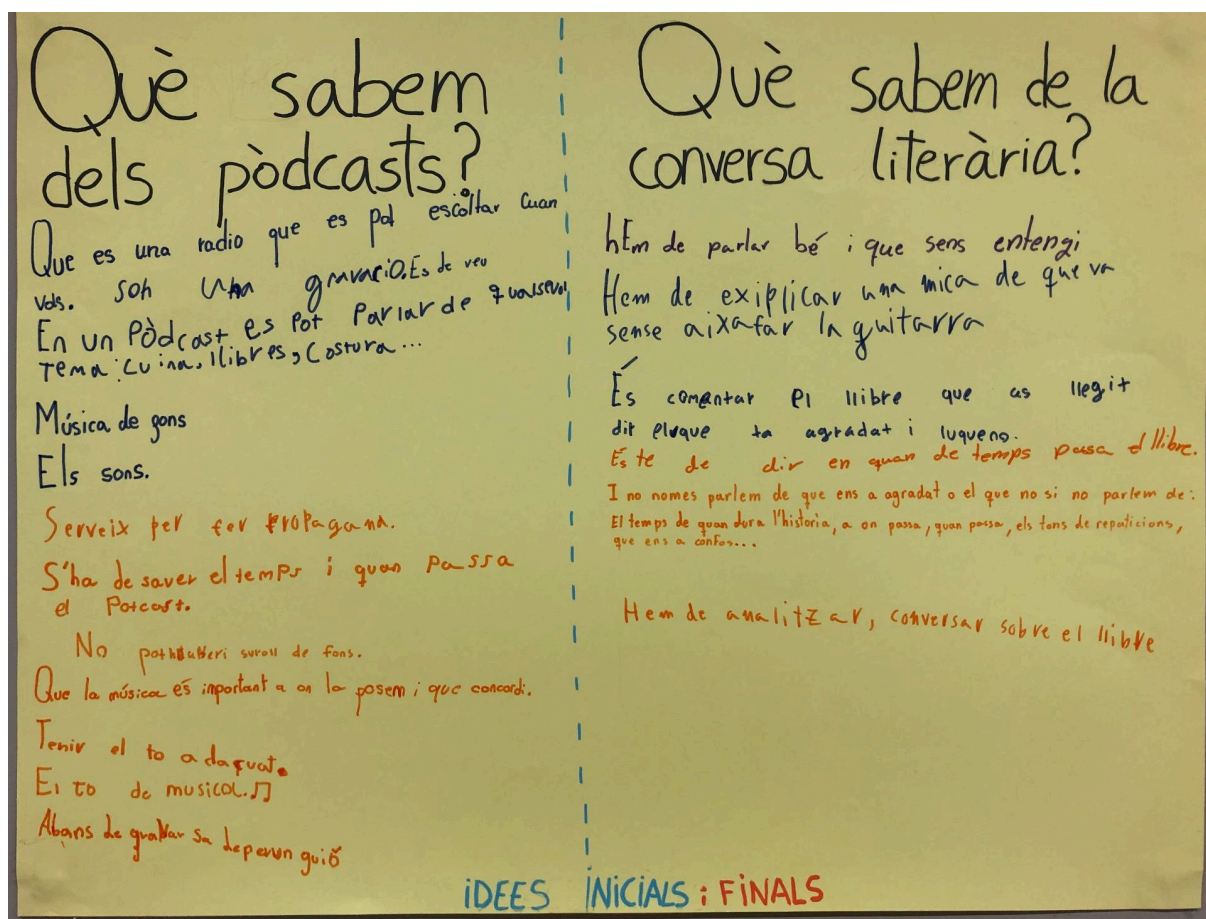 Què sabem
dels pòdcasts?
Que es una radio que es pot escoltar cuan
vols. son una gravació. Es de veu
En un Pòdcast es Pot Parlar de qualsevol
Tema: Cuina, llibres, Costura...
Música de gons
Els sons.
Serveix per fer propagana.
S'ha de saver el temps i quan Passa
el Potcast.
No suroll de fons.
Que la música és inportant a on la posem i que concordi.
Tenir el to adaquat.
El to de musical.♫
Abans de gravar sa de un guió
Què sabem de la
conversa literària?
hEm de parlar bé i que sens entengi
Hem de exiplicar una mica de que va
sense aixafar la guitarra
És comentar el llibre que as llegit
dit eluque ta agradat i luqueno.
És te de dir en quan de temps passa el llibre.
I no nomes parlem de que ens a agradat o el que no si no parlem de:
El temps de quan dura l'història, a on passa, quan passa, els tons de repaticions,
que ens a confos...
Hem de analitzar, conversar sobre el llibre
iDEES iNiCiALS i FiNALS